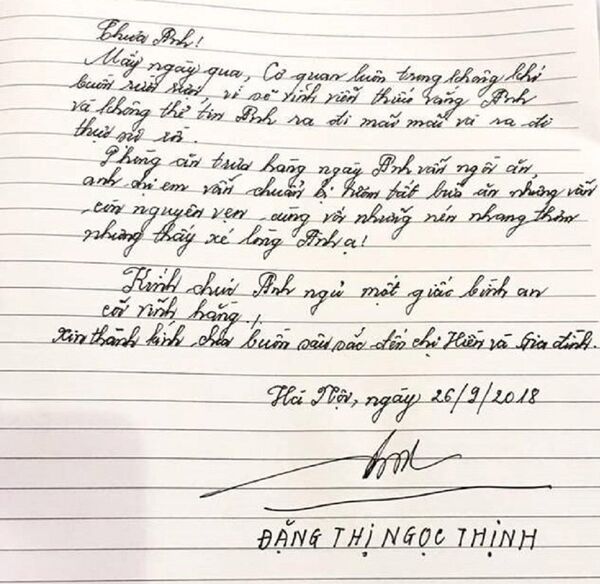 Thưa Anh!
Mấy ngày qua, Cơ quan luôn trong không khí
buồn rười rượi vì sẽ vĩnh viễn thiếu vắng Anh
và không thể tin Anh ra đi mãi mãi và ra đi
thực sự rồi.
Phòng ăn trưa hàng ngày Anh vẫn ngồi ăn,
anh chị em vẫn chuẩn bị tươm tất bữa ăn nhưng vẫn
còn nguyên vẹn cùng với những nén nhang thơm
nhưng thấy xé lòng Anh ạ!
Kính chúc Anh ngủ một giấc bình an
cõi vĩnh hằng!
Xin thành kính chia buồn sâu sắc đến chị Hiền và Gia đình.
Hà Nội, ngày 26/9/2018
ĐẶNG THỊ NGỌC THỊNH